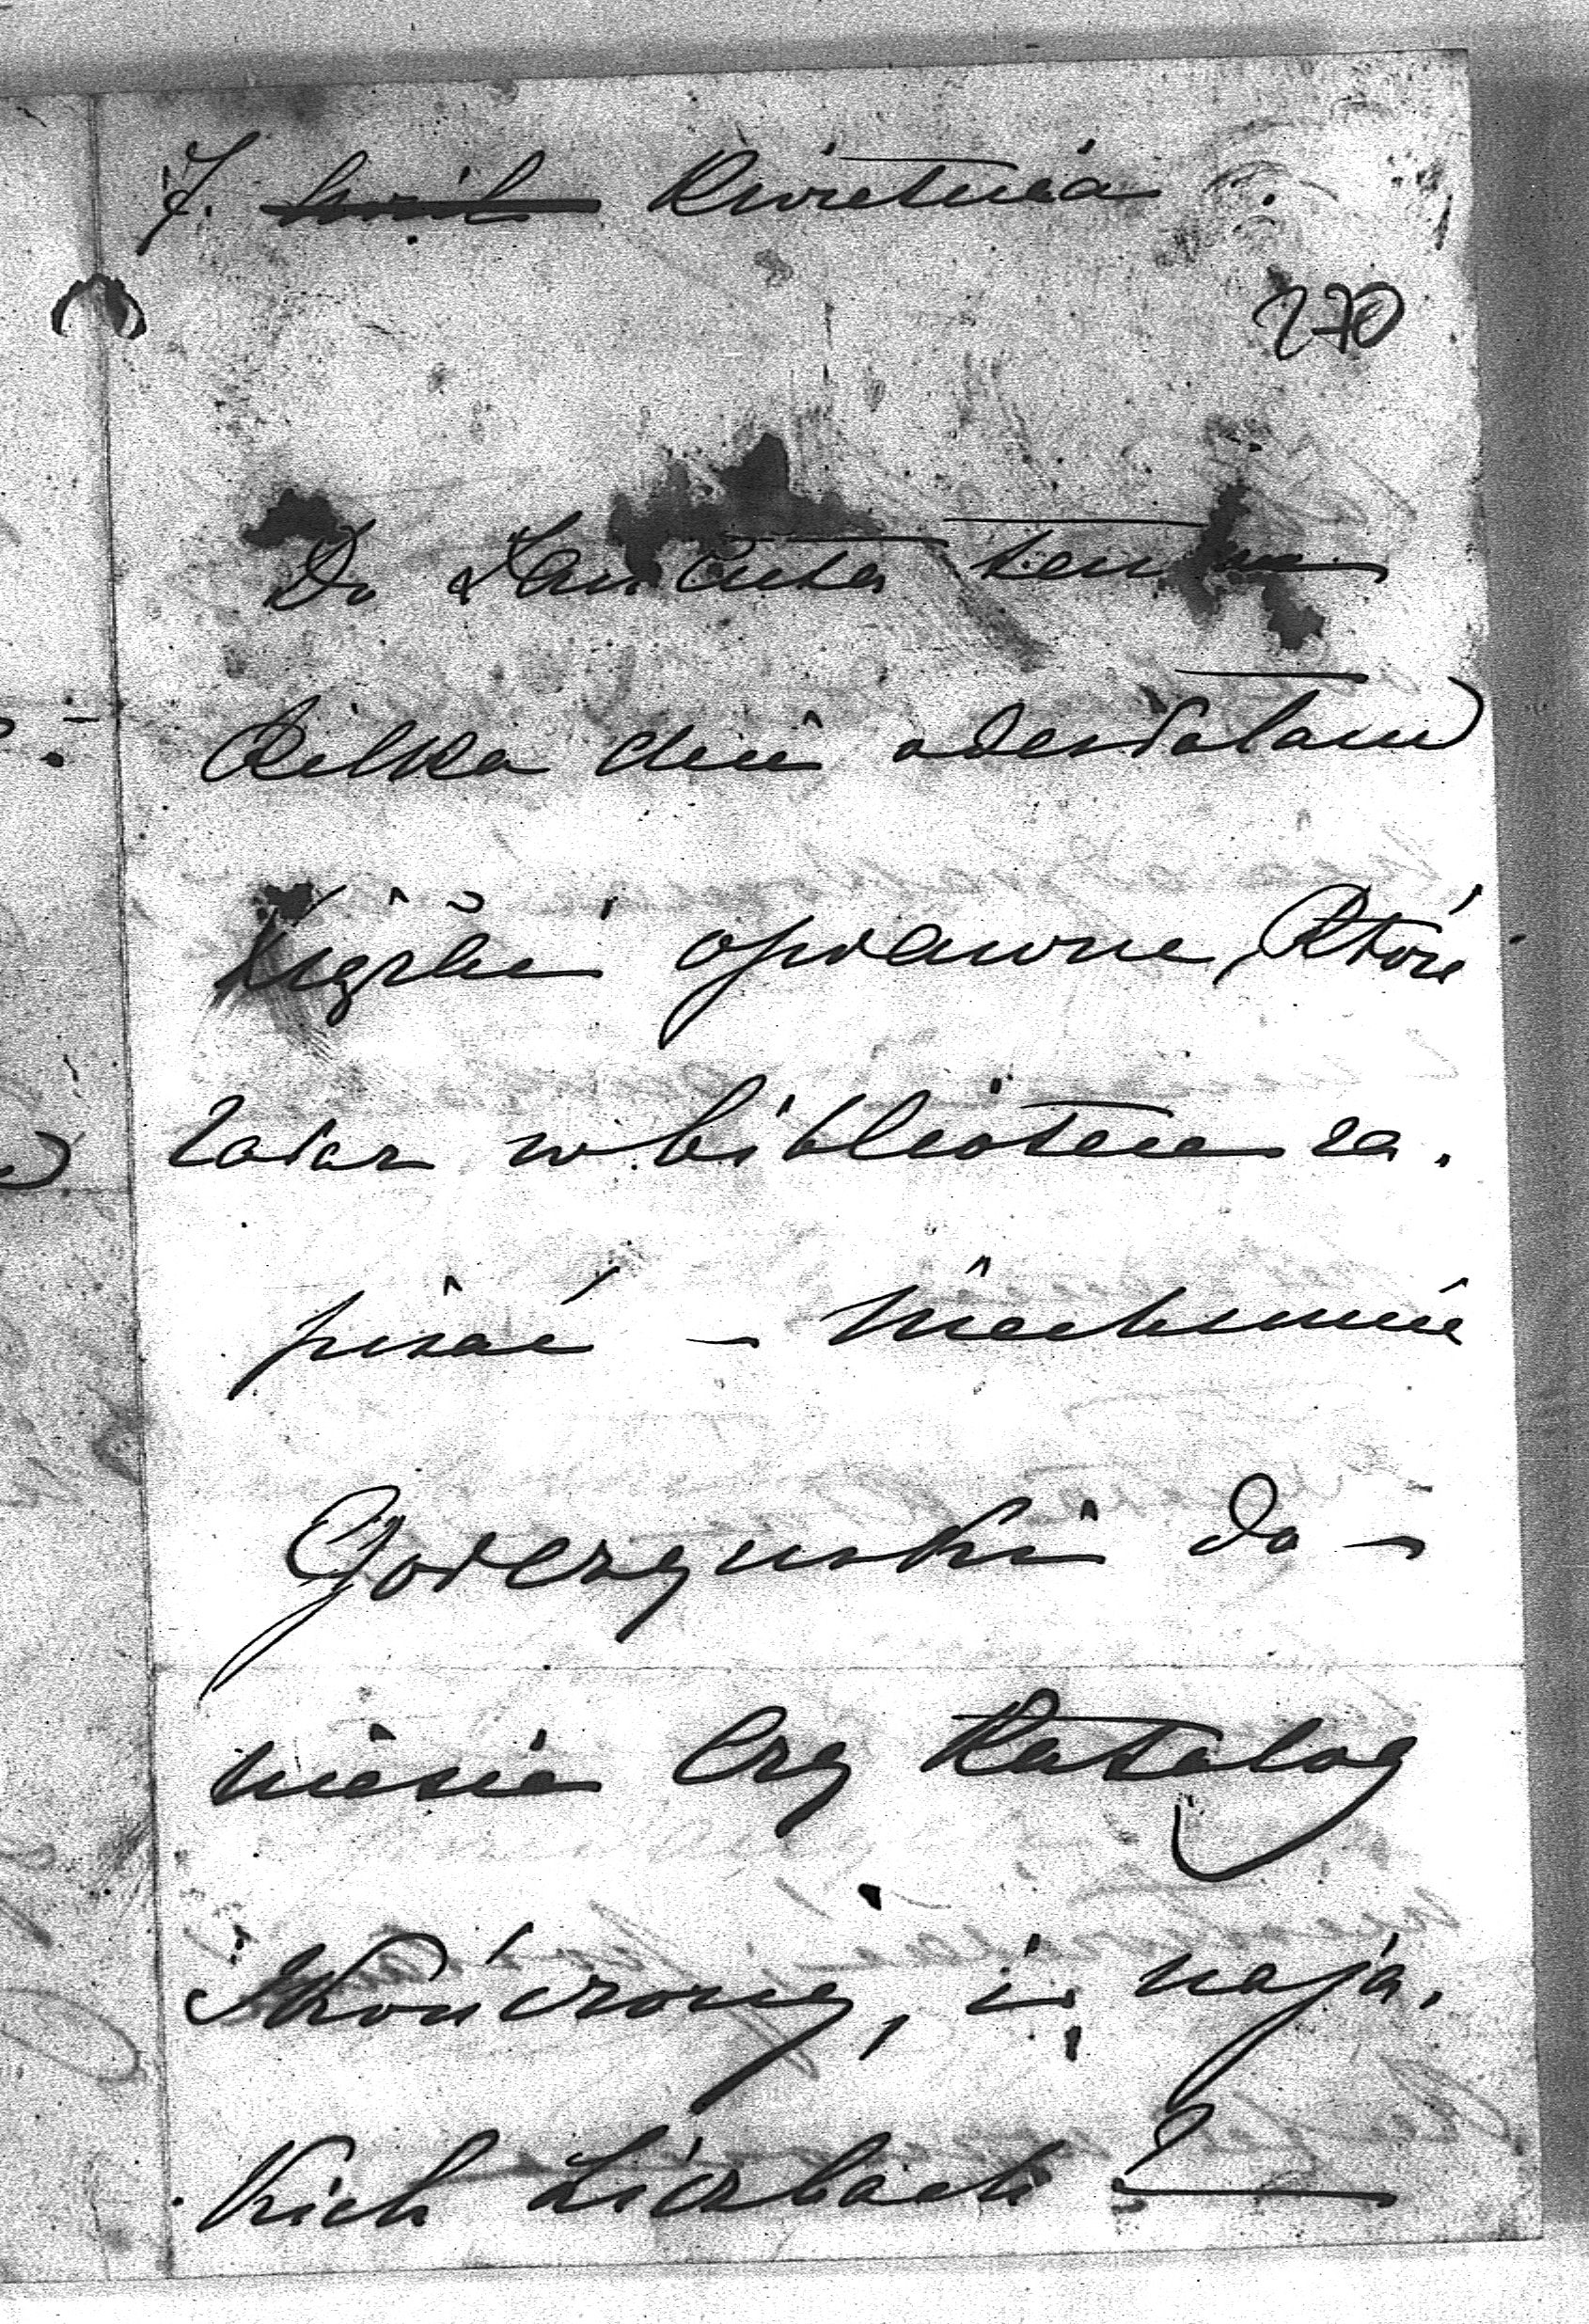 7. Kwietnia
270
Do Łańcuta temu
Kilka dni odesłałam
Książki oprawne, które
zaraz w bibliotece za.
pisać – Niech mnie
Gorczyński do –
niesie czy Katalog
skończony, i na ja.
kich Liczbach ?